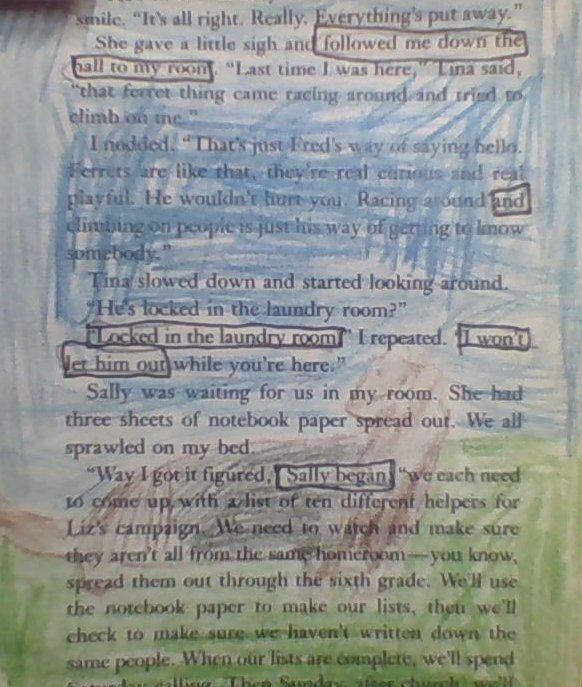 smile. “It’s all right. Really. Everything’s put away.”
She gave a little sigh and followed me down the
hall to my room. “Last time I was here,” Tina said,
“that ferret thing came racing around and tried to
climb on me.”
I nodded. “That’s just Fred’s way of saying hello.
Ferrets are like that, they’re real curious and real
playful. He wouldn’t hurt you. Racing around and
climbing on people is just his way of getting to know
somebody.”
Tina slowed down and started looking around.
“He’s locked in the laundry room?”
“Locked in the laundry room,” I repeated. “I won’t
let him out while you’re here.”
Sally was waiting for us in my room. She had
three sheets of notebook paper spread out. We all
sprawled on my bed.
“Way I got it figured,” Sally began, “we each need
to come up with a list of ten different helpers for
Liz’s campaign. We need to watch and make sure
they aren’t all from the same homeroom—you know,
spread them out through the sixth grade. We’ll use
the notebook paper to make our lists, then we’ll
check to make sure we haven’t written down the
same people. When our lists are complete, we’ll spend
Saturday calling. Then Sunday, after church, we’ll